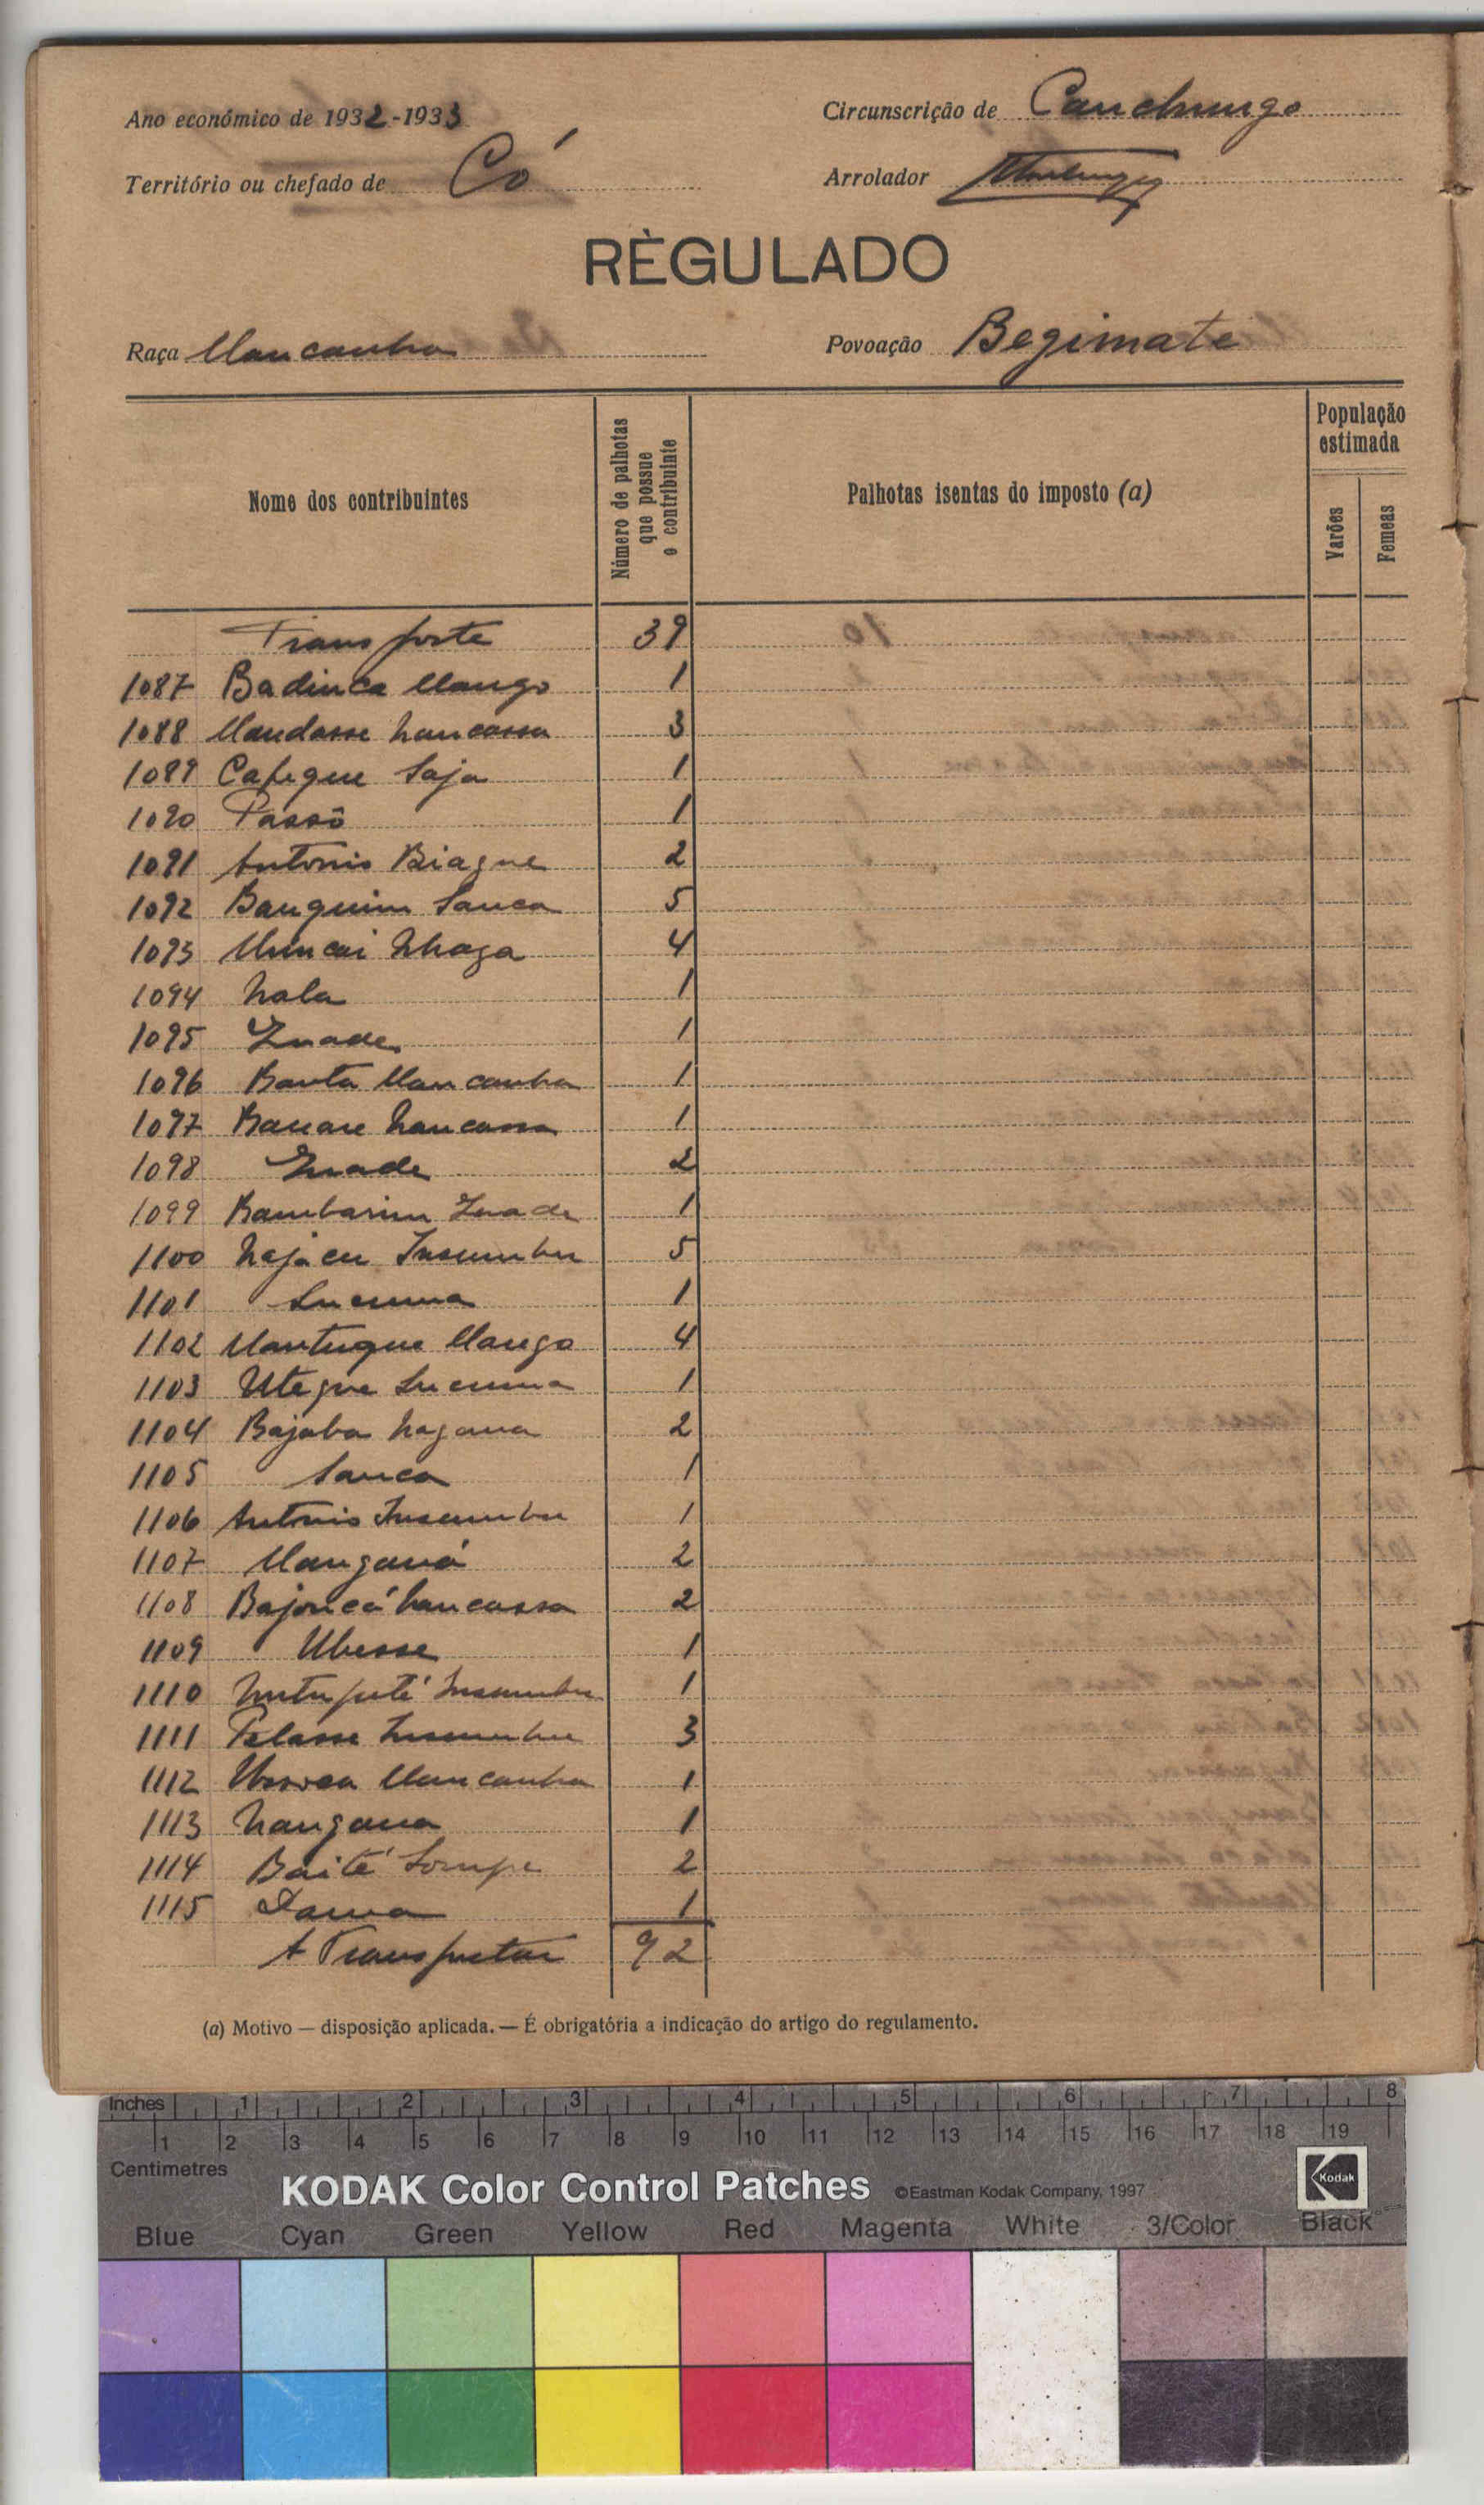 Ano económico de 1932-1933
Circunscrição de Canchungo
Território ou chefado de Có
Arrolador
RÈGULADO
Raça Mancanha
Povoação Begimate
Nome dos contribuintes
Número de palhotas que possue o contribuinte
Palhotas isentas do imposto (a)
População estimada
Varões
Femeas
Transporte 39
1087 Badinca Mango 1
1088 Mandasse Nancassa 3
1089 Cafique Saja 1
1090 Passô 1
1091 Antonio Biague 2
1092 Banguim Sanca 5
1093 Muncai Nhaga 4
1094 Nala 1
1095 Zuade 1
1096 Banta Mancanha 1
1097 Banare Nancassa 1
1098 Zuade 2
1099 Bambarim Zuade 1
1100 Najacu Insumbu 5
1101 Lucuma 1
1102 Mantuque Mango 4
1103 Utegue Lucuma 1
1104 Bajaba Nagana 2
1105 Sanca 1
1106 Antonio Insumbu 1
1107 Manganá 2
1108 Nancassa 2
1109 Ubesse 1
1110 Insumbu 1
1111 Insumbu 3
1112 Mancanha 1
1113 Nangana 1
1114 Baité Sompe 2
1115 1
A Transportar 92
(a) Motivo — disposição aplicada. — É obrigatória a indicação do artigo do regulamento.
Inches 1 2 3 4 5 6 7 8
1 2 3 4 5 6 7 8 9 10 11 12 13 14 15 16 17 18 19
Centimetres
KODAK Color Control Patches ©Eastman Kodak Company, 1997 Kodak
Blue Cyan Green Yellow Red Magenta White 3/Color Black